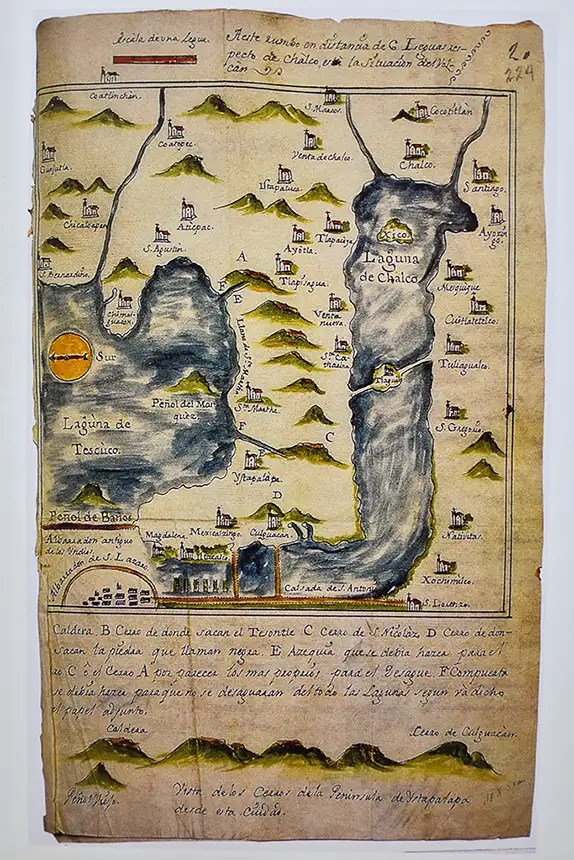 Escala de una Legua.
A este rumbo en distancia de 6 Leguas res-
pecto de Chalco, esta la Situacion del Vol-
cán
2.
224
Coatinchan.
S. Marcos.
Cocotitlàn
Coatepec.
Venta de chalco.
Chalco.
Ystapaluca.
Santiago.
Chicaloapan
Aticpac.
Tlapacoya
Xico
Ayotzin
go.
S. Agustin.
Ayotla
Laguna
de Chalco
S. Bernardino.
A
Tlapisagua.
Mesquique
F
E
Chimal-
guacan.
Venta
nueva.
Cuitlatetelco.
Sur
Llano de S.ta Marta
S.ta Ca-
tharina
Tuliagualco.
Tlagua
Peñol del Mar-
quez
S.ta Martha.
Laguna de
Tescuco.
F
C
S. Gregorio.
E
Ystapalapa.
D
Peñol de Baños.
Albarradon antiguo
de los Yndios.
Magdalena
Mexicalzingo.
Culguacàn.
Nativitas.
Albarradon de S. Lazaro
Xochimilco.
Calsada de S. Antonio
S. Lorenzo.
Caldera. B Cerro de donde sacan el Tesontle C cerro de S. Nicolàz D Cerro de don-
sacan la piedra que llaman negra. E Azequia que se debia hazer para el
ro C ô el Cerro A por parecer los mas proprios para el Desague. F Compuerta
se debia hazer para que no se desaguaran del todo las Lagunas segun va dicho
el papel adjunto.
Caldera.
Cerro de Culguacàn.
Peñol Viejo.
Vista de los Cerros de la Peninsula de Ystapalapa
desde esta Ciudad.